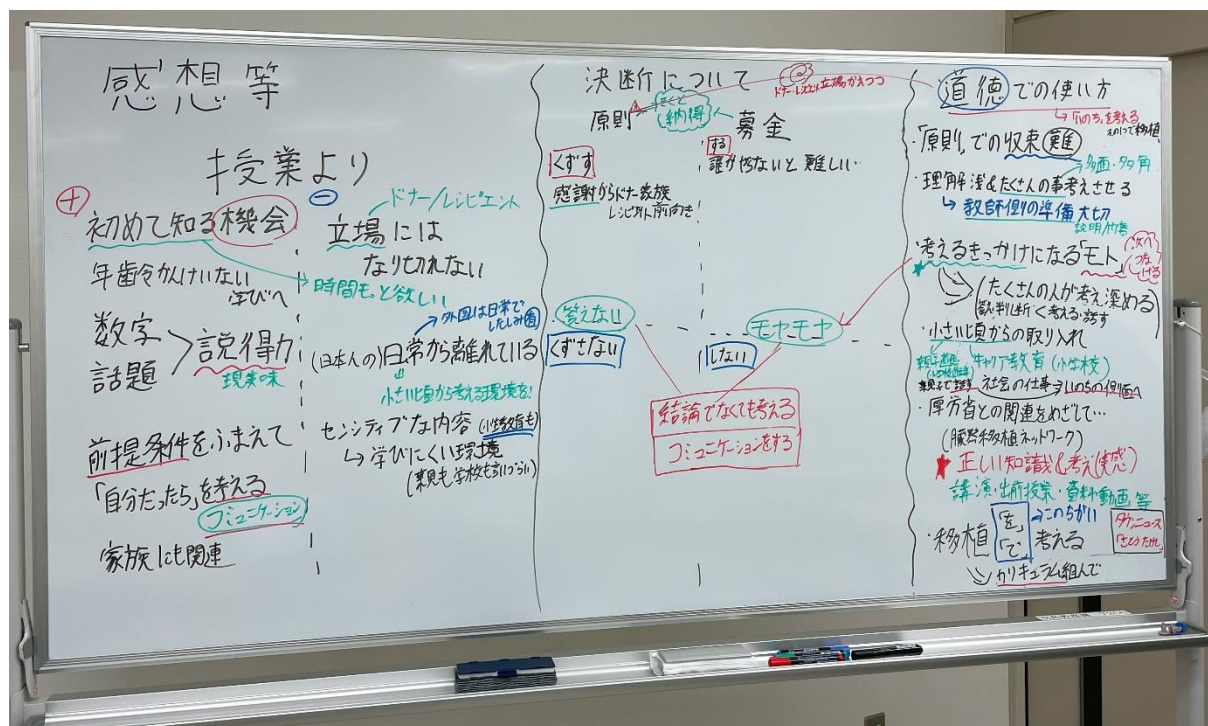 感想等
授業より
⊕
初めて知る機会
年齢かんけいない
学びへ
数字
話題
説得力
現実味
前提条件をふまえて
「自分だったら」を考える
コミュニケーション
家族にも関連
⊖
ドナー/レシピエント
立場には
なり切れない
時間もっと欲しい
外国は日常で
(日本人の)日常から離れている
小さい頃から考える環境を!
センシティブな内容
↳学びにくい環境
(親も学校も言いづらい)
決断について
ドナー・レシピエント立場かえつつ
原則
納得
募金
くずす
感謝からドナー家族
レシピエント前向き
する
誰かやらないと難しい…
答えない
くずさない
モヤモヤ
しない
結論でなくても考える
コミュニケーションをする
道徳での使い方
「いのち」を考える
・「原則」での収束難
多面・多角
・理解浅&たくさんの事考えさせる
↳教師側の準備大切
・考えるきっかけになる「モト」
次へ
つなげる
(たくさんの人が考え深める
・小さい頃からの取り入れ
キャリア教育(小学校)
社会の仕事→いのちの価値へ
・厚労省との関連をめざして…
(臓器移植ネットワーク)
★正しい知識&考え(実感)
講演・出前授業・資料動画等
・移植「を」「で」考える
→このちがい
カリキュラム組んで
タウンニュース
「さとうたけし」